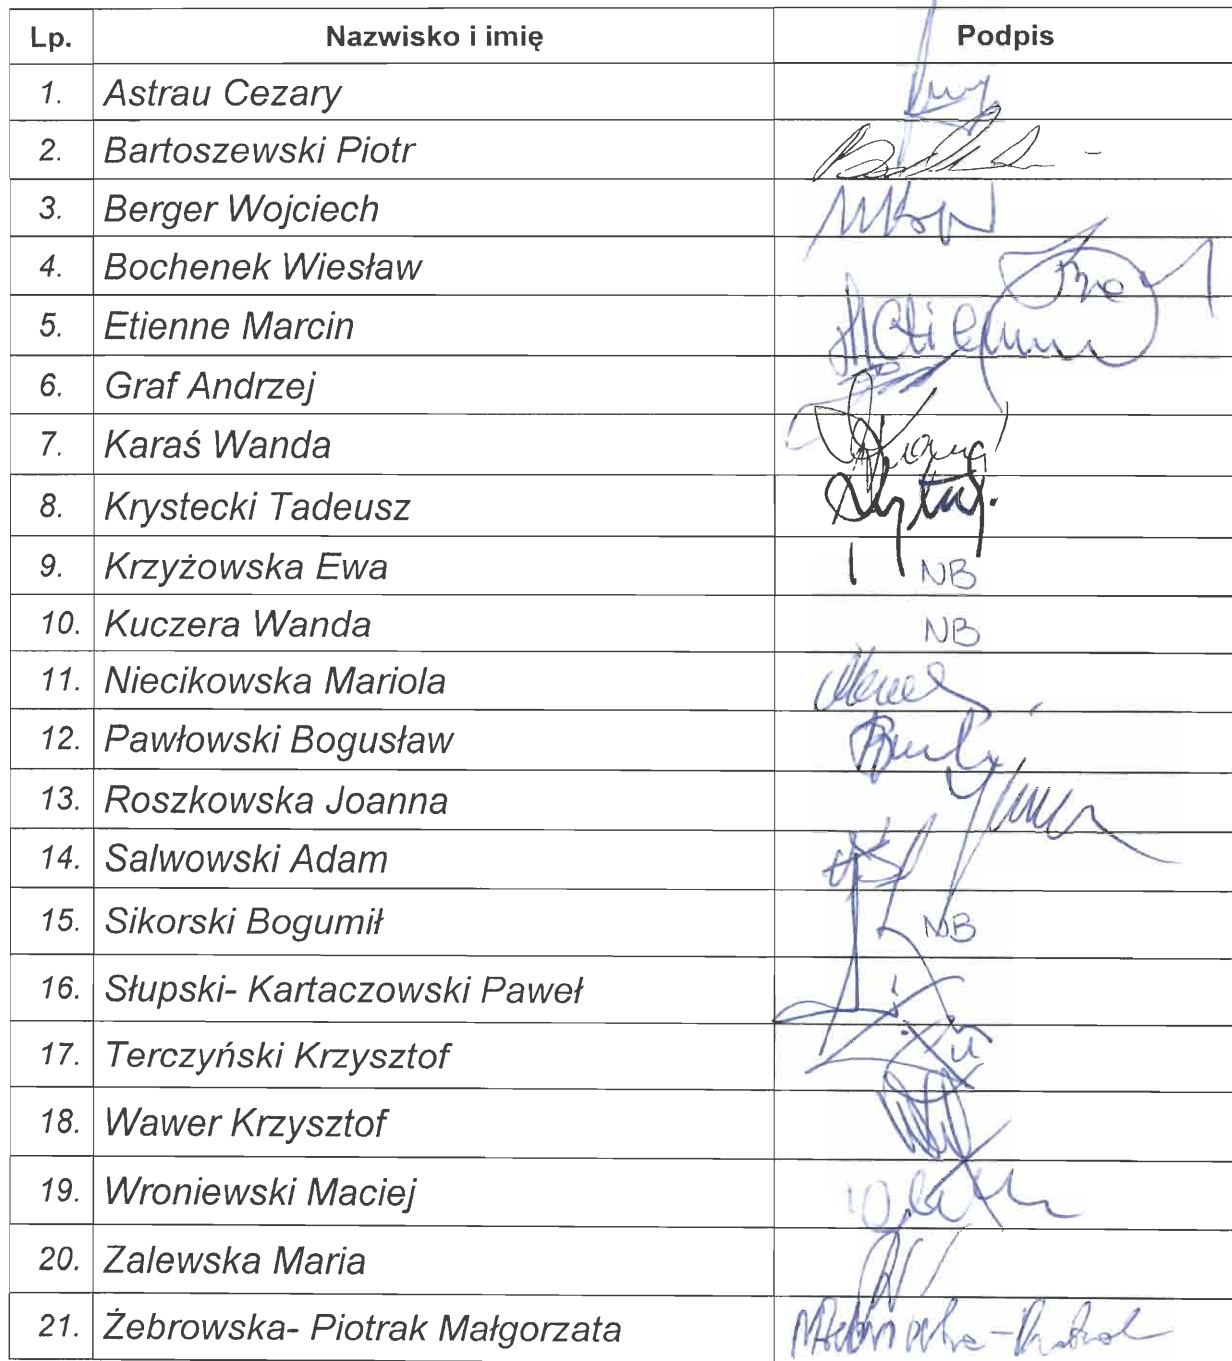 Lp. Nazwisko i imię Podpis
1. Astrau Cezary
2. Bartoszewski Piotr
3. Berger Wojciech
4. Bochenek Wiesław
5. Etienne Marcin
6. Graf Andrzej
7. Karaś Wanda
8. Krystecki Tadeusz
9. Krzyżowska Ewa NB
10. Kuczera Wanda NB
11. Niecikowska Mariola
12. Pawłowski Bogusław
13. Roszkowska Joanna
14. Salwowski Adam
15. Sikorski Bogumił NB
16. Słupski- Kartaczowski Paweł
17. Terczyński Krzysztof
18. Wawer Krzysztof
19. Wroniewski Maciej
20. Zalewska Maria
21. Żebrowska- Piotrak Małgorzata